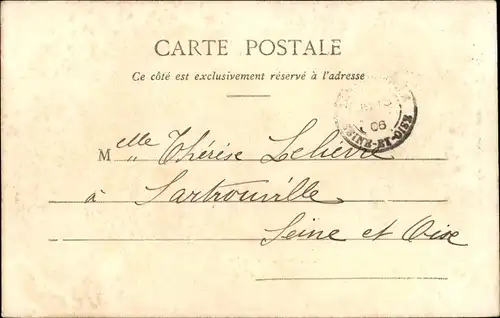 CARTE POSTALE
Ce côté est exclusivement réservé à l'adresse
06
SEINE-ET-OISE
Melle Thérèse Lelièvre
à Sartrouville
Seine et Oise